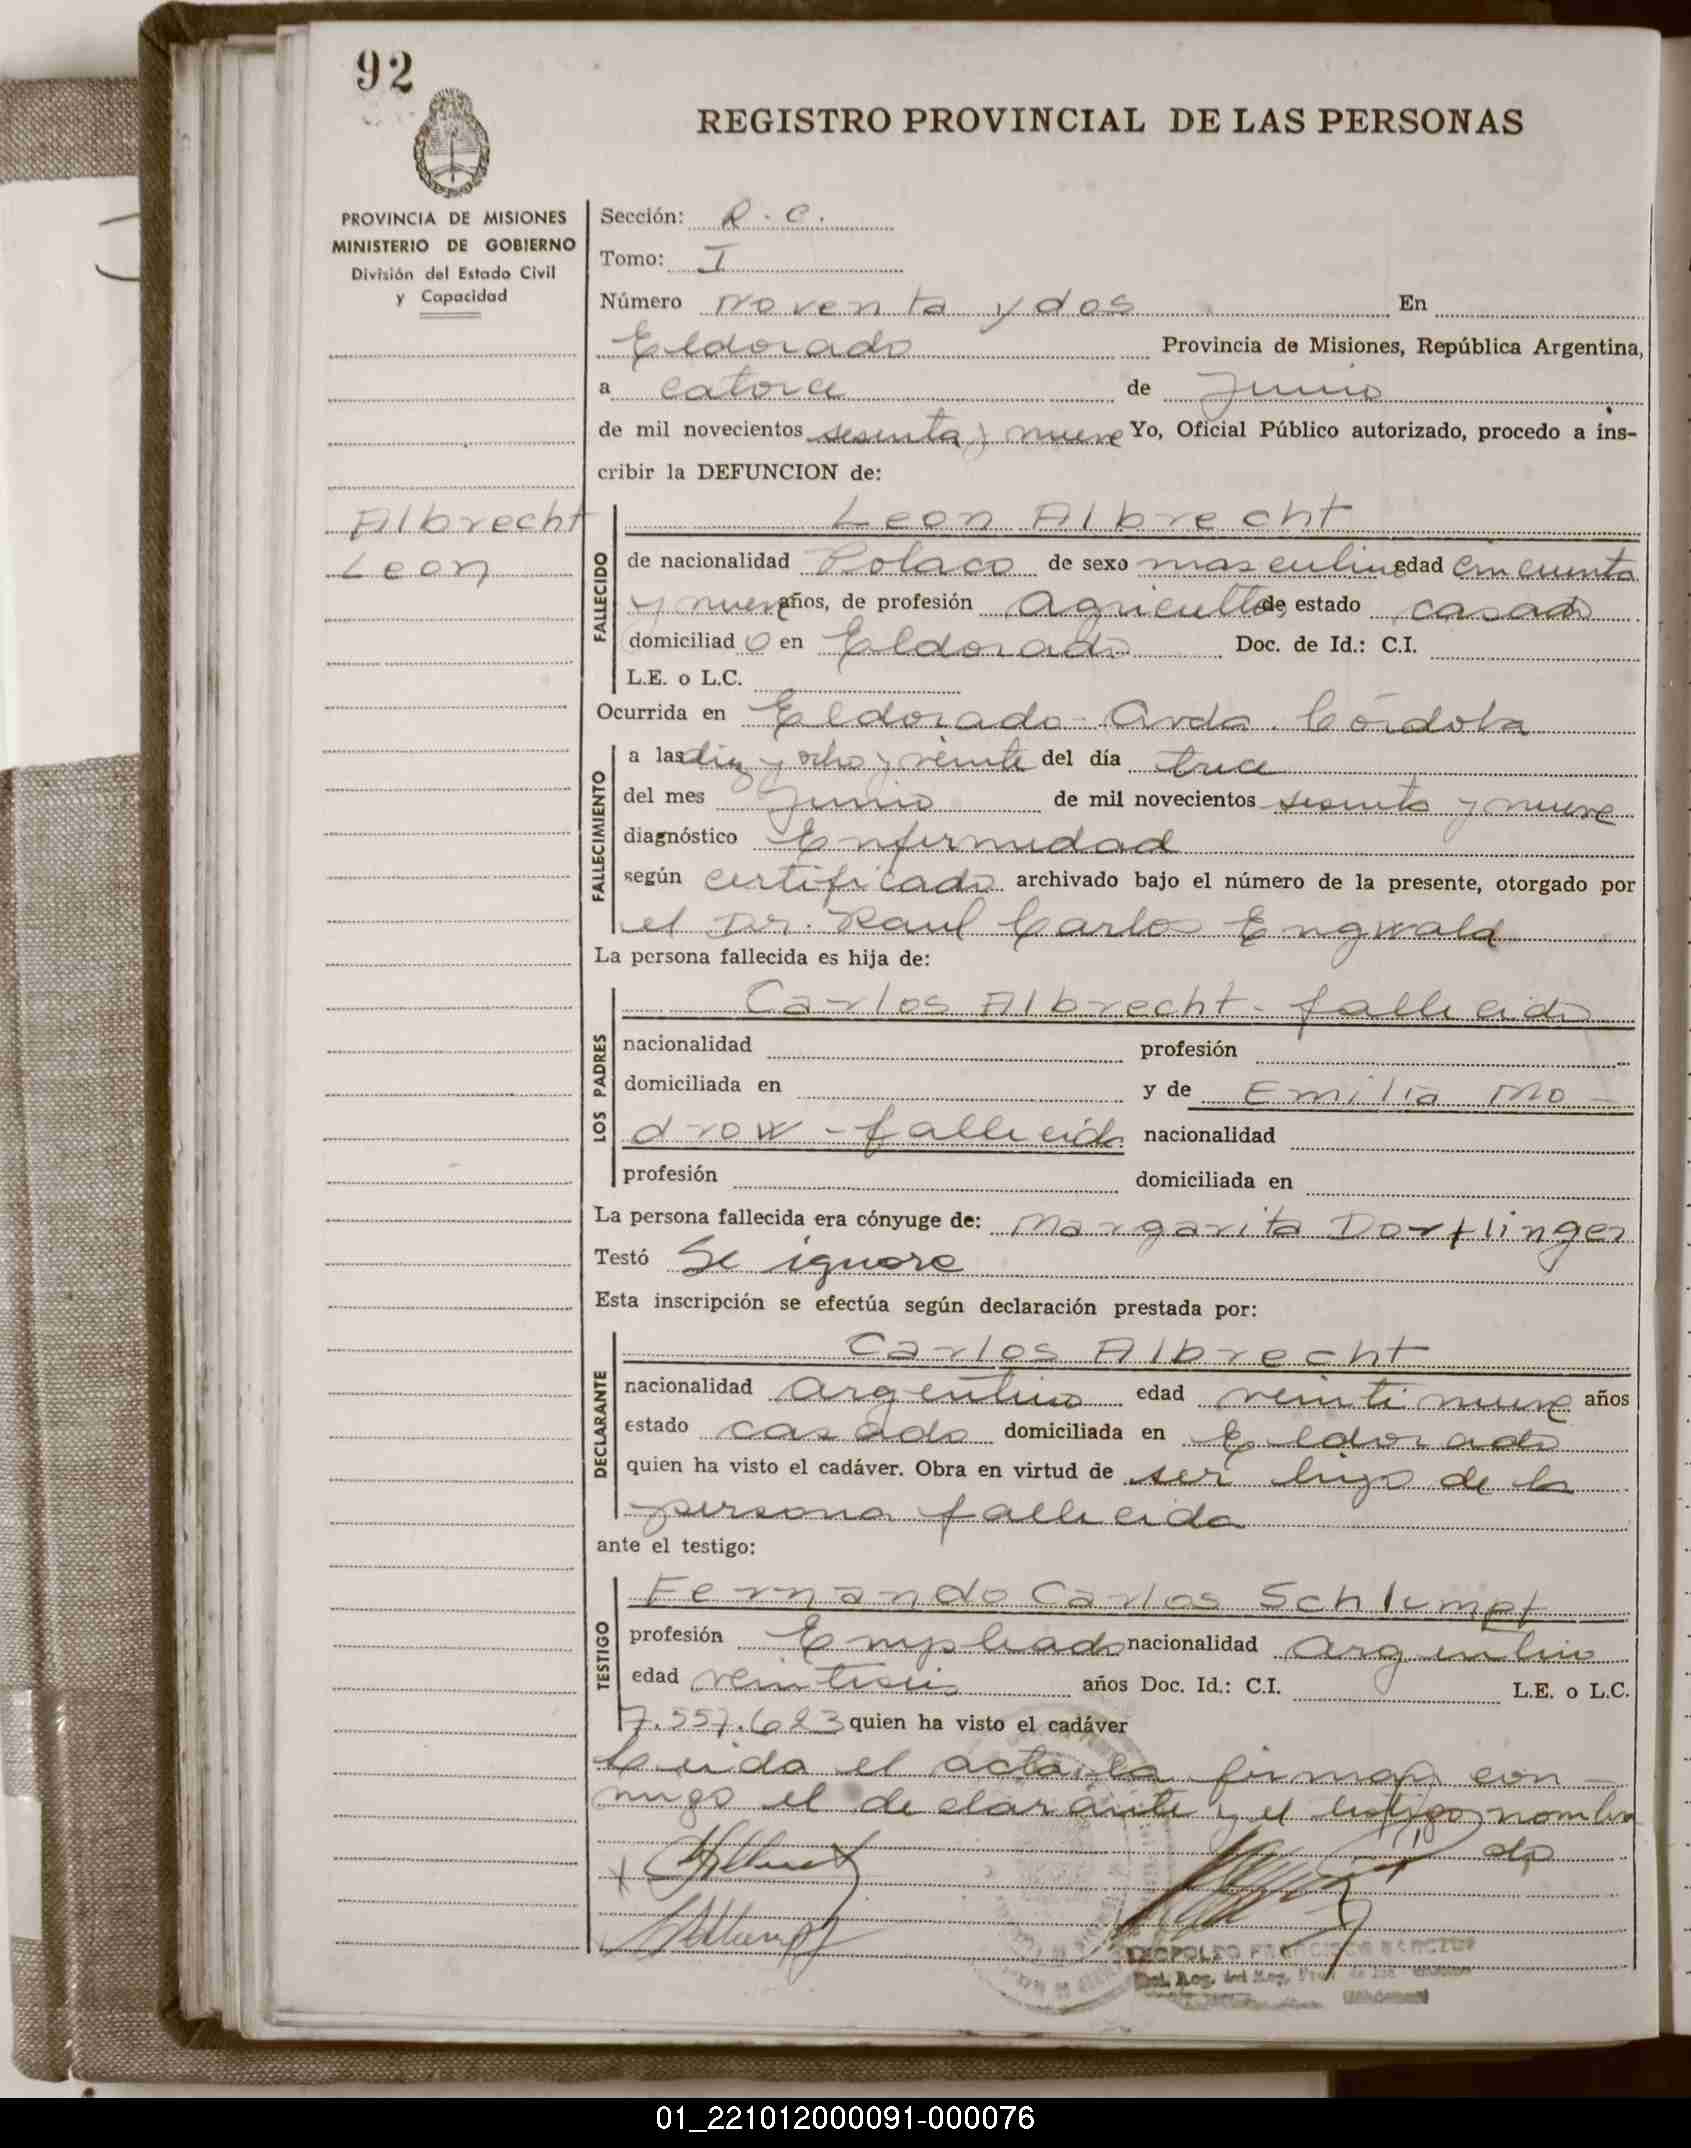 92
REGISTRO PROVINCIAL DE LAS PERSONAS
PROVINCIA DE MISIONES
MINISTERIO DE GOBIERNO
División del Estado Civil
y Capacidad
Sección: R. C.
Tomo: I
Número noventa y dos En
Eldorado Provincia de Misiones, República Argentina,
a catorce de Junio
de mil novecientos sesenta y nueve Yo, Oficial Público autorizado, procedo a ins-
cribir la DEFUNCION de:
Albrecht
Leon
FALLECIDO
Leon Albrecht
de nacionalidad Polaco de sexo masculino edad cincuenta
y nueve años, de profesión agricultor de estado casado
domiciliad o en Eldorado Doc. de Id.: C.I.
L.E. o L.C.
Ocurrida en Eldorado - Avda. Córdoba
FALLECIMIENTO
a las diez y ocho y veinte del día trece
del mes Junio de mil novecientos sesenta y nueve
diagnóstico Enfermedad
según certificado archivado bajo el número de la presente, otorgado por
el Dr. Raul Carlos Engwald
La persona fallecida es hija de:
LOS PADRES
Carlos Albrecht - fallecido
nacionalidad profesión
domiciliada en y de Emilia Mo-
drow - fallecida nacionalidad
profesión domiciliada en
La persona fallecida era cónyuge de: Margarita Dorflinger
Testó Se ignora
Esta inscripción se efectúa según declaración prestada por:
DECLARANTE
Carlos Albrecht
nacionalidad argentino edad veinti nueve años
estado casado domiciliada en Eldorado
quien ha visto el cadáver. Obra en virtud de ser hijo de la
persona fallecida
ante el testigo:
TESTIGO
Fernando Carlos Schlumpf
profesión Empleado nacionalidad argentino
edad veintiseis años Doc. Id.: C.I. L.E. o L.C.
7.557.623 quien ha visto el cadáver
Leida el acta, la firman con-
migo el declarante y el testigo nombra
do
01_221012000091-000076